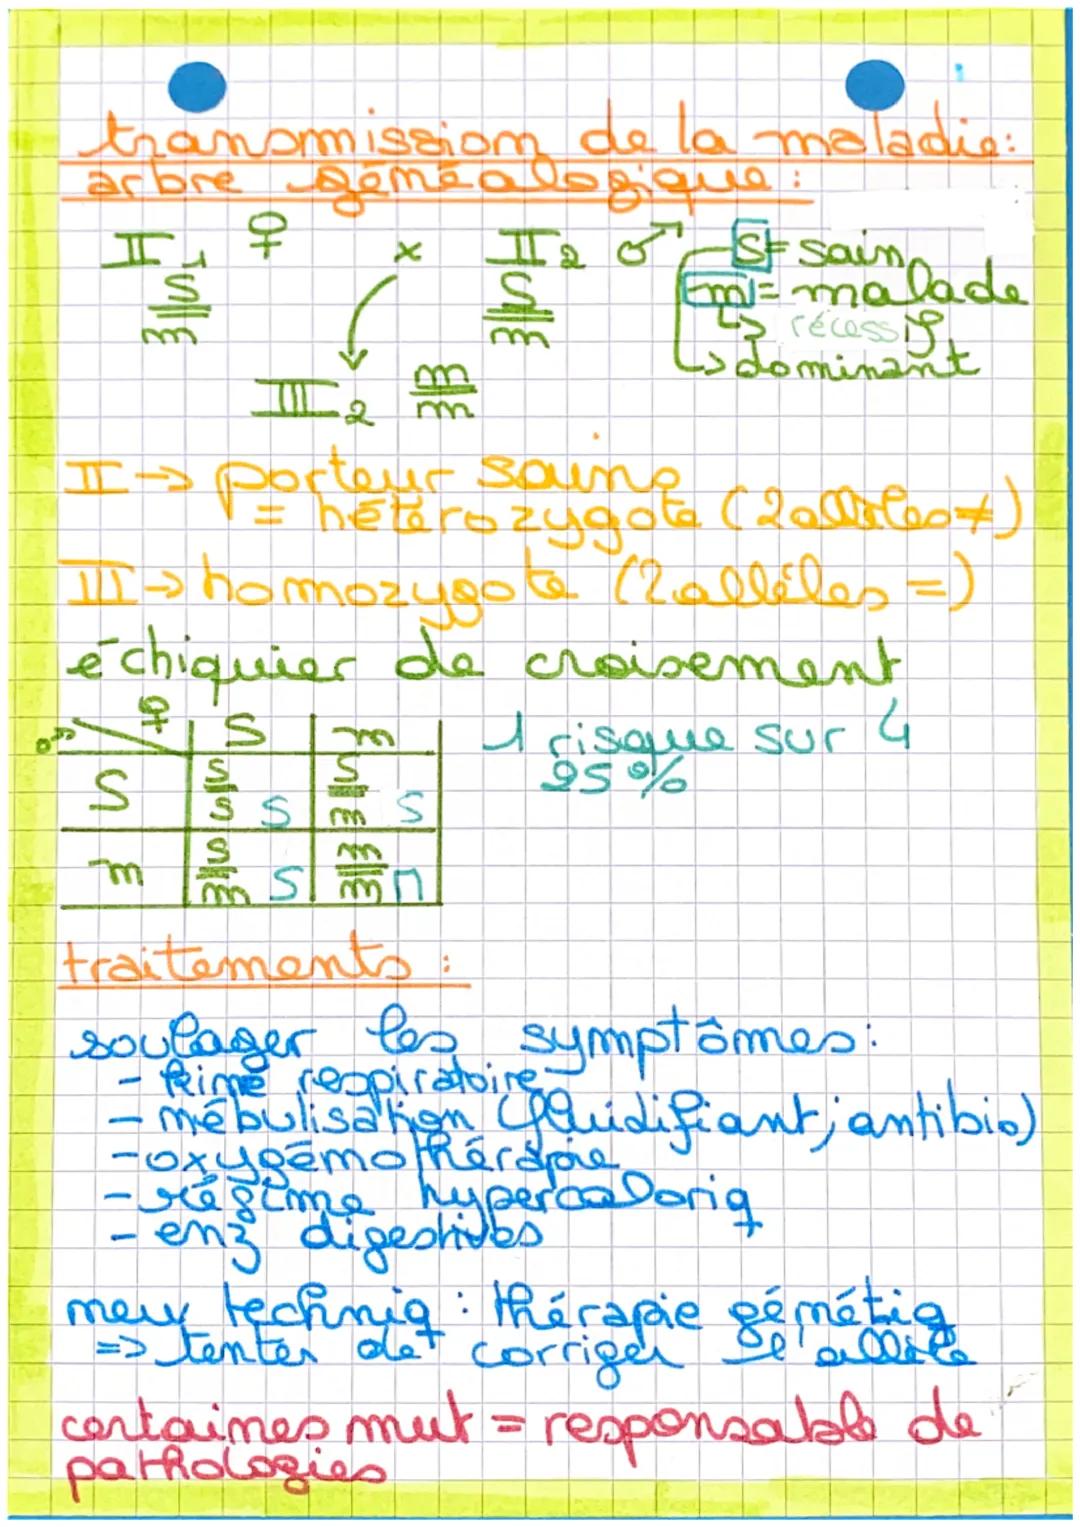 transmission de la maladie:
arbre généalogique:
II1 ♀ x II2 ♂
S/m S/m
S = sain
m = malade
↳ récessif
↳ dominant
III2 m/m
II → porteur sains
= hétérozygote (2 allèles ≠)
III → homozygote (2 allèles =)
échiquier de croisement
♂ ♀ S m
S S/S S S/m S
m S/m S m/m M
1 risque sur 4
25 %
traitements:
soulager les symptômes:
- kiné respiratoire
- nébulisation (fluidifiant; antibio)
- oxygénothérapie
- régime hypercaloriq
- enz digestives
new techniq: thérapie génétiq
=> tenter de corriger l'allèle
certaines mut = responsable de
pathologies